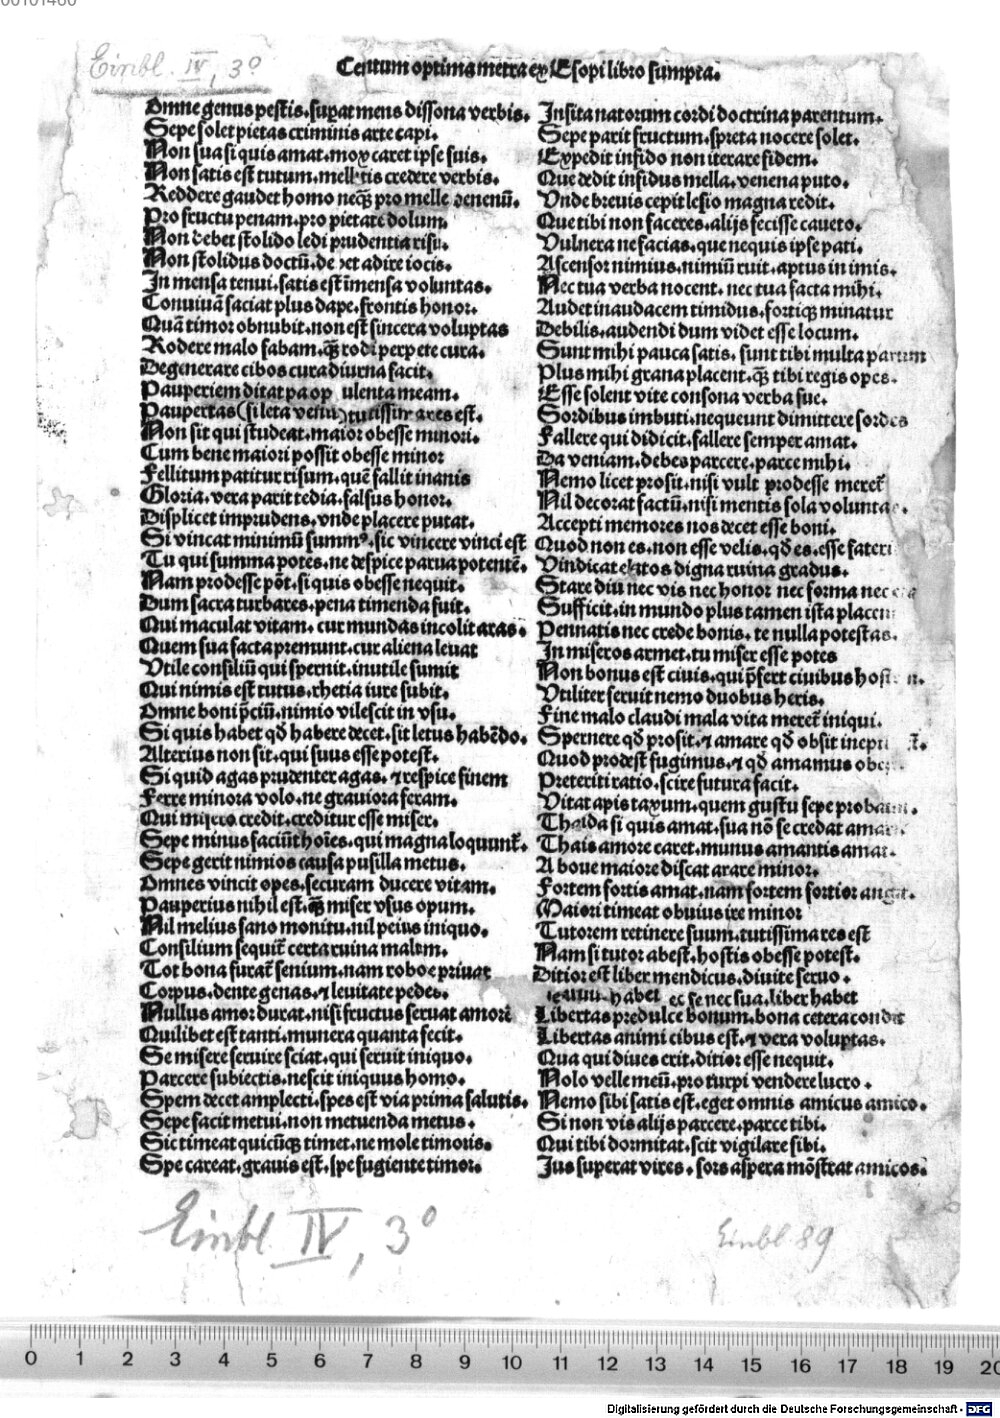 00101460
Einbl. IV, 3º
Centum optima metra ex Esopi libro sumpta.
Omne genus pestis.supat mens dissona verbis.
Sepe solet pietas criminis arte capi.
Non sua si quis amat.mox caret ipse suis.
Non satis est tutum.mellitis credere verbis.
Reddere gaudet homo nequ pro melle venenū.
Pro fructu penam.pro pietate dolum.
Non debet stolido ledi prudentia risu.
Non stolidus doctū.debet adire iocis.
In mensa tenui.satis est īmensa voluntas.
Conviuā saciat plus dape.frontis honor.
Quā timor obnubit.non est sincera voluptas
Rodere malo fabam.qȝ rodi perpete cura.
Degenerare cibos cura diurna facit.
Pauperiem ditat pa op ulenta meam.
Paupertas (si leta venit) tutissima res est.
Non sit qui studeat.maior obesse minori.
Cum bene maiori possit obesse minor
Fellitum patitur risum.quē fallit inanis
Gloria.vera parit tedia.falsus honor.
Displicet imprudens.vnde placere putat.
Si vincat minimū summꝰ.sic vincere vinci est
Tu qui summa potes.ne despice parua potentē.
Nam prodesse pōt.si quis obesse nequit.
Dum sacra turbares.pena timenda fuit.
Qui maculat vitam.cur mundas incolit aras.
Quem sua facta premunt.cur aliena leuat
Vtile consiliū qui spernit.inutile sumit
Qui nimis est tutus.rhetia iure subit.
Omne boni p̄ciū.nimio vilescit in vsu.
Si quis habet qđ habere decet.sit letus habēdo.
Alterius non sit.qui suus esse potest.
Si quid agas prudenter agas.⁊ respice finem
Ferre minora volo.ne grauiora feram.
Qui misero credit.creditur esse miser.
Sepe minus faciūt hoīes.qui magna loquunt̄.
Sepe gerit nimios causa pusilla metus.
Omnes vincit opes.securam ducere vitam.
Pauperius nihil est.qȝ miser vsus opum.
Nil melius sano monitu.nil peius iniquo.
Consilium sequit̄ certa ruina malum.
Tot bona furat̄ senium.nam robore priuat
Corpus.dente genas.⁊ leuitate pedes.
Nullus amor durat.nisi fructus seruat amorē
Quilibet est tanti.munera quanta fecit.
Se misere seruire sciat.qui seruit iniquo.
Parcere subiectis.nescit iniquus homo.
Spem decet amplecti.spes est via prima salutis.
Sepe facit metui.non metuenda metus.
Sic timeat quicūqȝ timet.ne mole timoris.
Spe careat.grauis est.spe fugiente timor.
Insita natorum cordi doctrina parentum.
Sepe parit fructum.spreta nocere solet.
Expedit infido non iterare fidem.
Que dedit infidus mella.venena puto.
Vnde breuis cepit lesio magna redit.
Que tibi non faceres.alijs fecisse caueto.
Vulnera ne facias.que nequis ipse pati.
Ascensor nimius.nimiū ruit.aptus in imis.
Nec tua verba nocent. nec tua facta mihi.
Audet inaudacem timidus.fortiqȝ minatur
Debilis.audendi dum videt esse locum.
Sunt mihi pauca satis. sunt tibi multa parum
Plus mihi grana placent.qȝ tibi regis opes.
Esse solent vite consona verba sue.
Sordibus imbuti.nequeunt dimittere sordes
Fallere qui didicit.fallere semper amat.
Da veniam.debes parcere.parce mihi.
Nemo licet prosit.nisi vult prodesse meret̄
Nil decorat factū.nisi mentis sola voluntas.
Accepti memores nos decet esse boni.
Quod non es.non esse velis.qđ es.esse fateri
Vindicat elatos digna ruina gradus.
Stare diu nec vis nec honor nec forma nec
Sufficit.in mundo plus tamen ista placent
Pennatis nec crede bonis.te nulla potestas.
In miseros armet.tu miser esse potes
Non bonus est ciuis.qui p̄fert ciuibus hostem.
Vtiliter seruit nemo duobus heris.
Fine malo claudi mala vita meret̄ iniqui.
Spernere qđ prosit.⁊ amare qđ obsit inepti
Quod prodest fugimus.⁊ qđ amamus obest.
Preteriti ratio.scire futura facit.
Vitat apis taxum.quem gustu sepe probauit.
Thaida si quis amat.sua nō se credat amari.
Thais amore caret.munus amantis amat.
A boue maiore discat arare minor.
Fortem fortis amat.nam fortem fortior angit.
Maiori timeat obuius ire minor
Tutorem retinere suum.tutissima res est
Nam si tutor abest.hostis obesse potest.
Ditior est liber mendicus.diuite seruo.
habet ec se nec sua.liber habet
Libertas predulce bonum.bona cetera condit
Libertas animi cibus est.⁊ vera voluptas.
Qua qui diues erit.ditior esse nequit.
Nolo velle meū.pro turpi vendere lucro.
Nemo sibi satis est.eget omnis amicus amico.
Si non vis alijs parcere.parce tibi.
Qui tibi dormitat.scit vigilare sibi.
Jus superat vires.sors aspera mōstrat amicos.
Einbl IV, 3º
Einbl 89
0 1 2 3 4 5 6 7 8 9 10 11 12 13 14 15 16 17 18 19 20
Digitalisierung gefördert durch die Deutsche Forschungsgemeinschaft - DFG